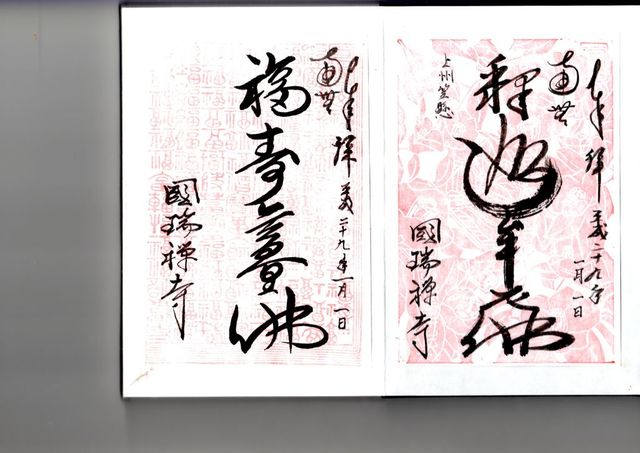 奉拝 平成二十九年
一月一日
南無
釋迦牟尼佛
上州笠懸
國瑞禅寺
奉拝 平成二十九年一月一日
南無
福寿無量佛
國瑞禅寺